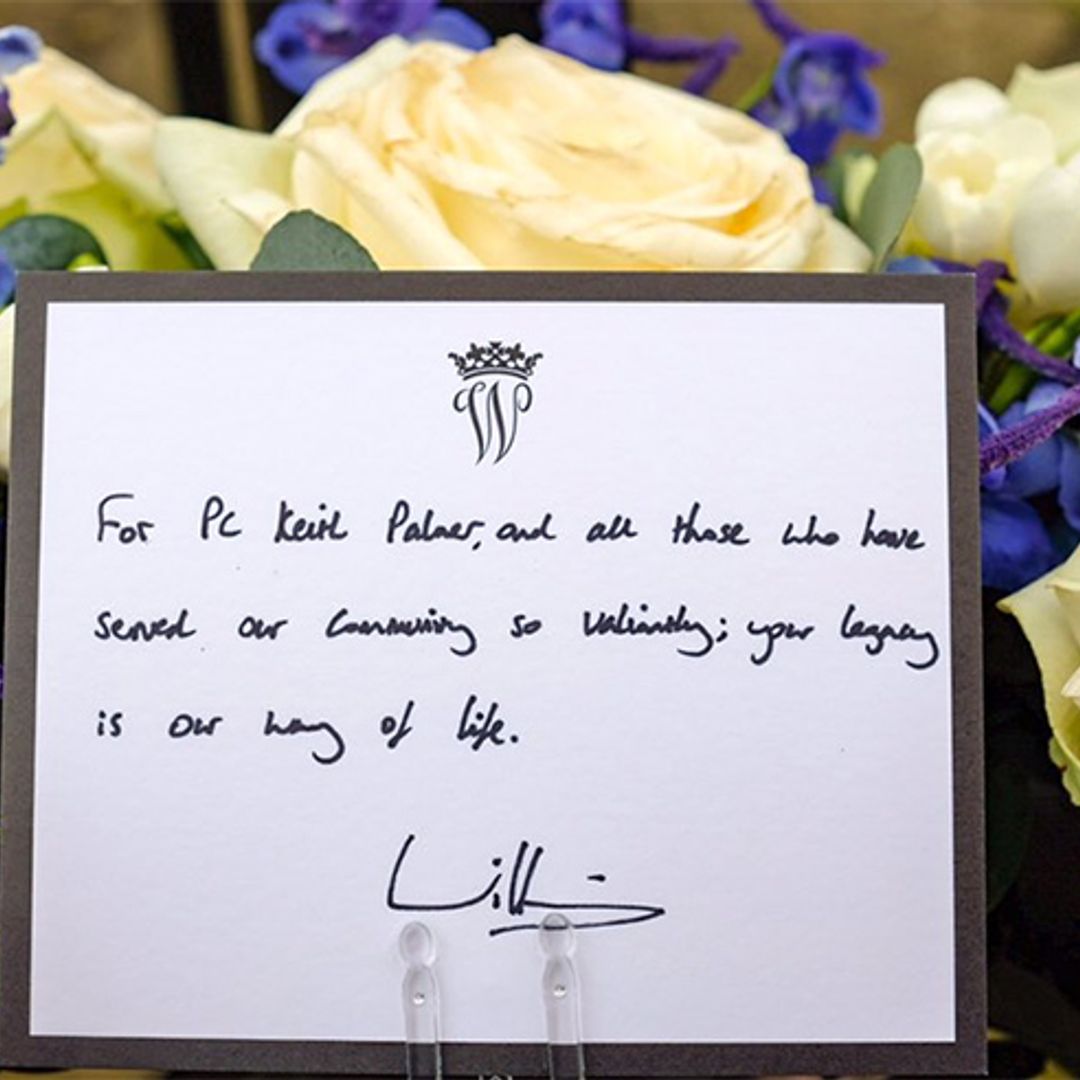 W
For PC Keith Palmer, and all those who have
served our Community so valiantly; your legacy
is our way of life.
William